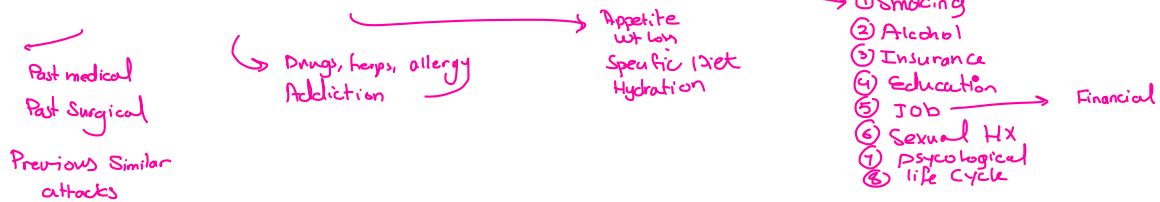 Past medical
Past Surgical
Previous Similar
attacks
Drugs, herps, allergy
Addiction
Appetite
wt loss
Specific Diet
Hydration
① Smoking
② Alcohol
③ Insurance
④ Education
⑤ JOB → Financial
⑥ Sexual HX
⑦ psycological
⑧ life Cycle